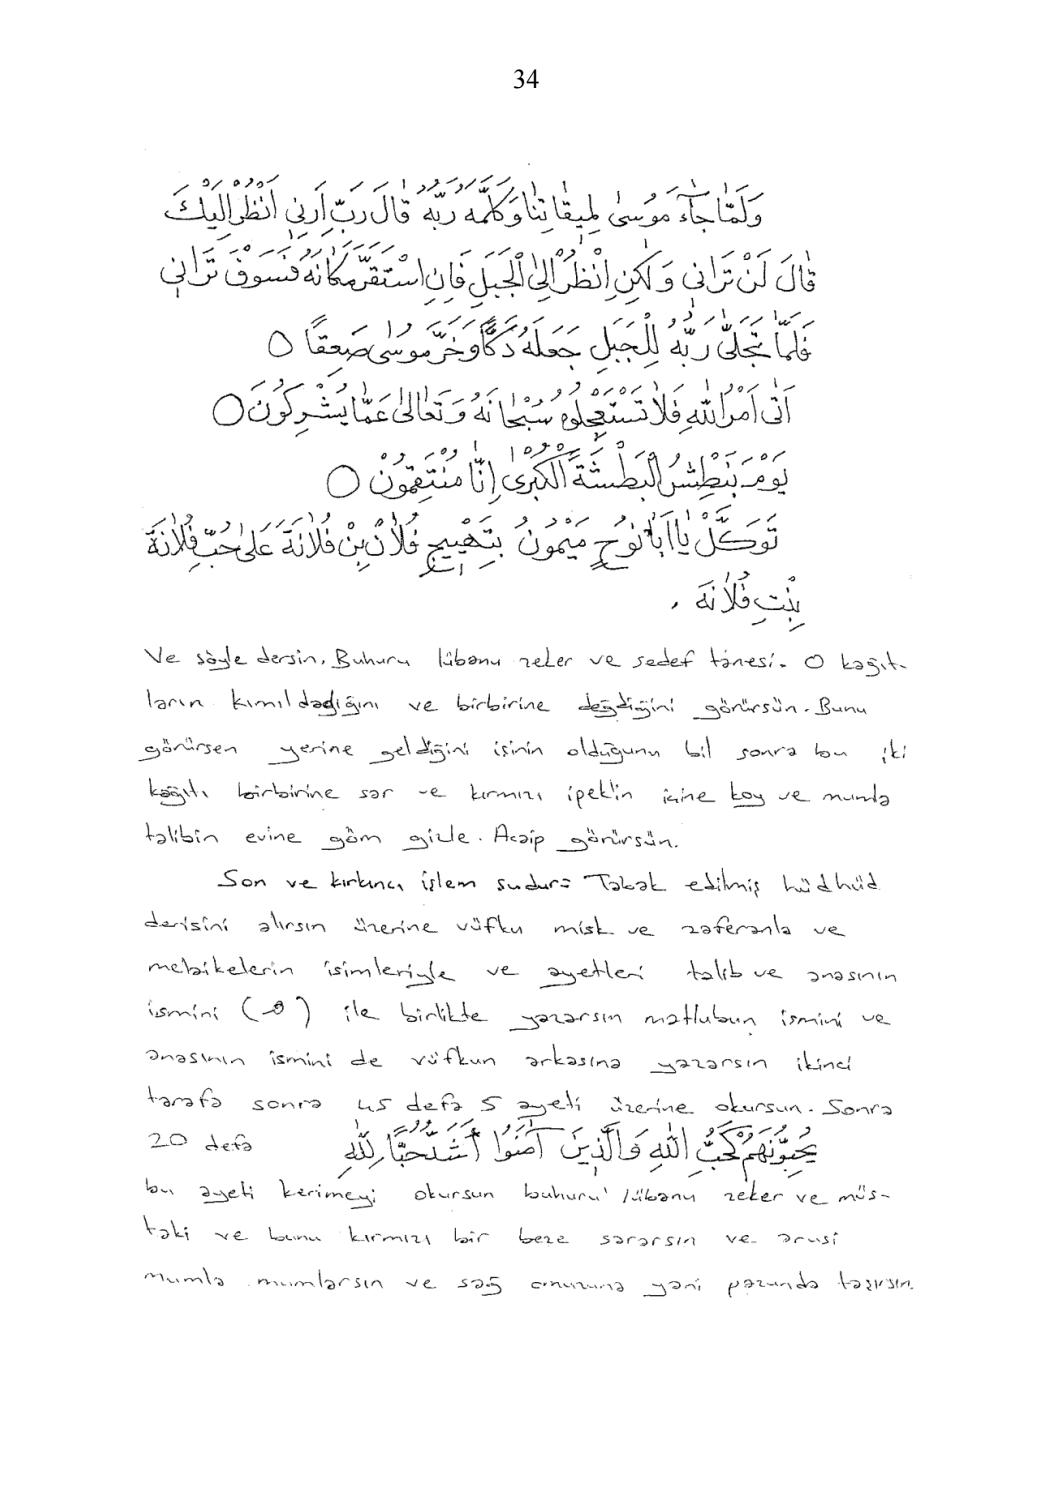 34
وَلَمَّا جَاءَ مُوسىٰ لِمِيقَاتِنَا وَكَلَّمَهُ رَبُّهُ قَالَ رَبِّ اَرِنِي اَنْظُرْ اِلَيْكَ
قَالَ لَنْ تَرَانِي وَلٰكِنِ انْظُرْ اِلَى الْجَبَلِ فَاِنِ اسْتَقَرَّ مَكَانَهُ فَسَوْفَ تَرَانِي
فَلَمَّا تَجَلّٰى رَبُّهُ لِلْجَبَلِ جَعَلَهُ دَكًّا وَخَرَّ مُوسٰى صَعِقًا ○
اَتٰى اَمْرُ اللّٰهِ فَلَا تَسْتَعْجِلُوهُ سُبْحَانَهُ وَتَعَالٰى عَمَّا يُشْرِكُونَ ○
يَوْمَ نَبْطِشُ الْبَطْشَةَ الْكُبْرٰى اِنَّا مُنْتَقِمُونْ ○
تَوَكَّلْ يَا اَبَا نُوحٍ مَيْمُونُ بِتَهْيِيجِ فُلَانْ بِنْ فُلَانَةَ عَلٰى حُبِّ فُلَانَةَ
بِنْتِ فُلَانَه .
Ve söyle dersin. Buhuru lübanu zeker ve sedef tanesi. O kağıt-
ların kımıldadığını ve birbirine değdiğini görürsün. Bunu
görürsen yerine geldiğini işinin olduğunu bil sonra bu iki
kağıtı birbirine sar ve kırmızı ipek'in içine koy ve mumla
talibin evine göm gizle. Acaip görürsün.
Son ve kırkıncı işlem sudur= Tabak edilmiş hüdhüd
derisini alırsın üzerine vüfku misk ve zaferanla ve
melaikelerin isimleriyle ve ayetleri talib ve anasının
ismini ile birlikte yazarsın matlubun ismini ve
anasının ismini de vüfkun arkasına yazarsın ikinci
tarafa sonra 45 defa 5 ayeti üzerine okursun. Sonra
20 defa يُحِبُّونَهُمْ كَحُبِّ اللهِ وَالَّذِينَ آمَنُوا أَشَدُّ حُبًّا لِلّٰهِ
bu ayeti kerimeyi okursun buhuru lübanu zeker ve müs-
taki ve bunu kırmızı bir beze sararsın ve arusi
mumla mumlarsın ve sağ omuzuna yani pazunda taşırsın.